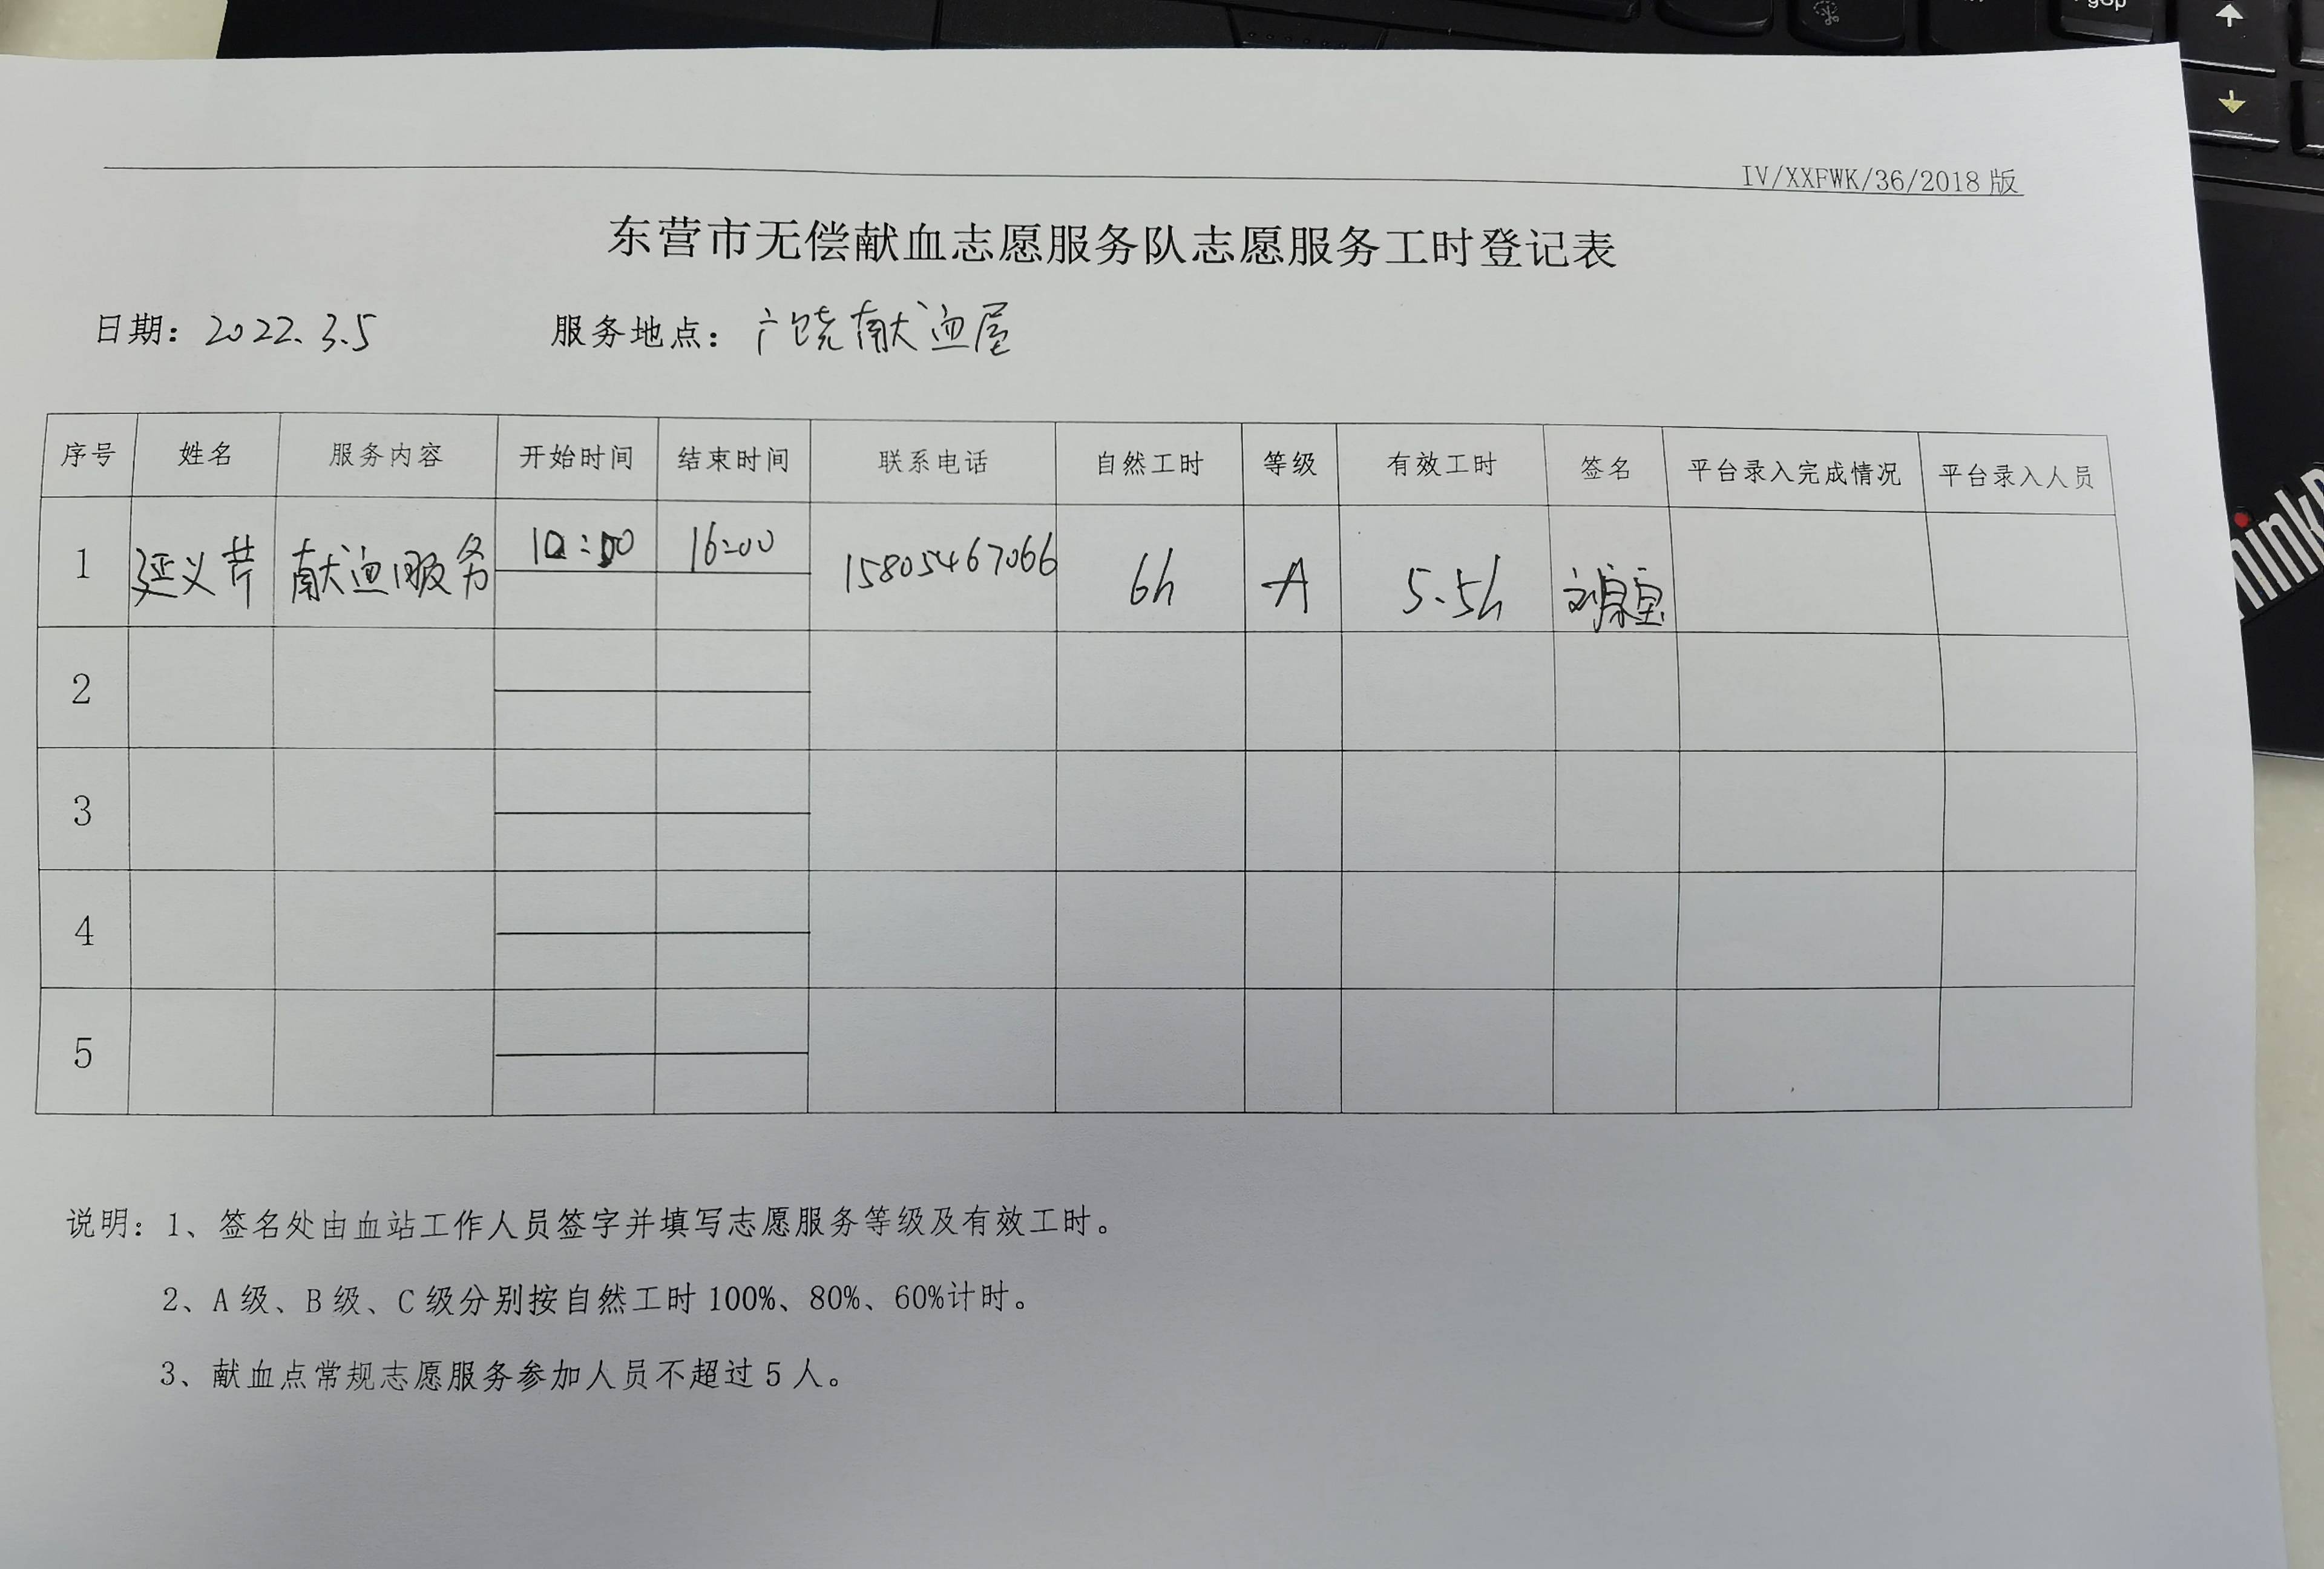 PgUp
IV/XXFWK/36/2018 版
东营市无偿献血志愿服务队志愿服务工时登记表
日期: 2022.3.5 服务地点: 广饶献血屋
序号 姓名 服务内容 开始时间 结束时间 联系电话 自然工时 等级 有效工时 签名 平台录入完成情况 平台录入人员
1 延义芹 献血服务 10:00 16:00 15805467066 6h A 5.5h
2
3
4
5
说明: 1、签名处由血站工作人员签字并填写志愿服务等级及有效工时。
2、A 级、B 级、C 级分别按自然工时 100%、80%、60%计时。
3、献血点常规志愿服务参加人员不超过 5 人。